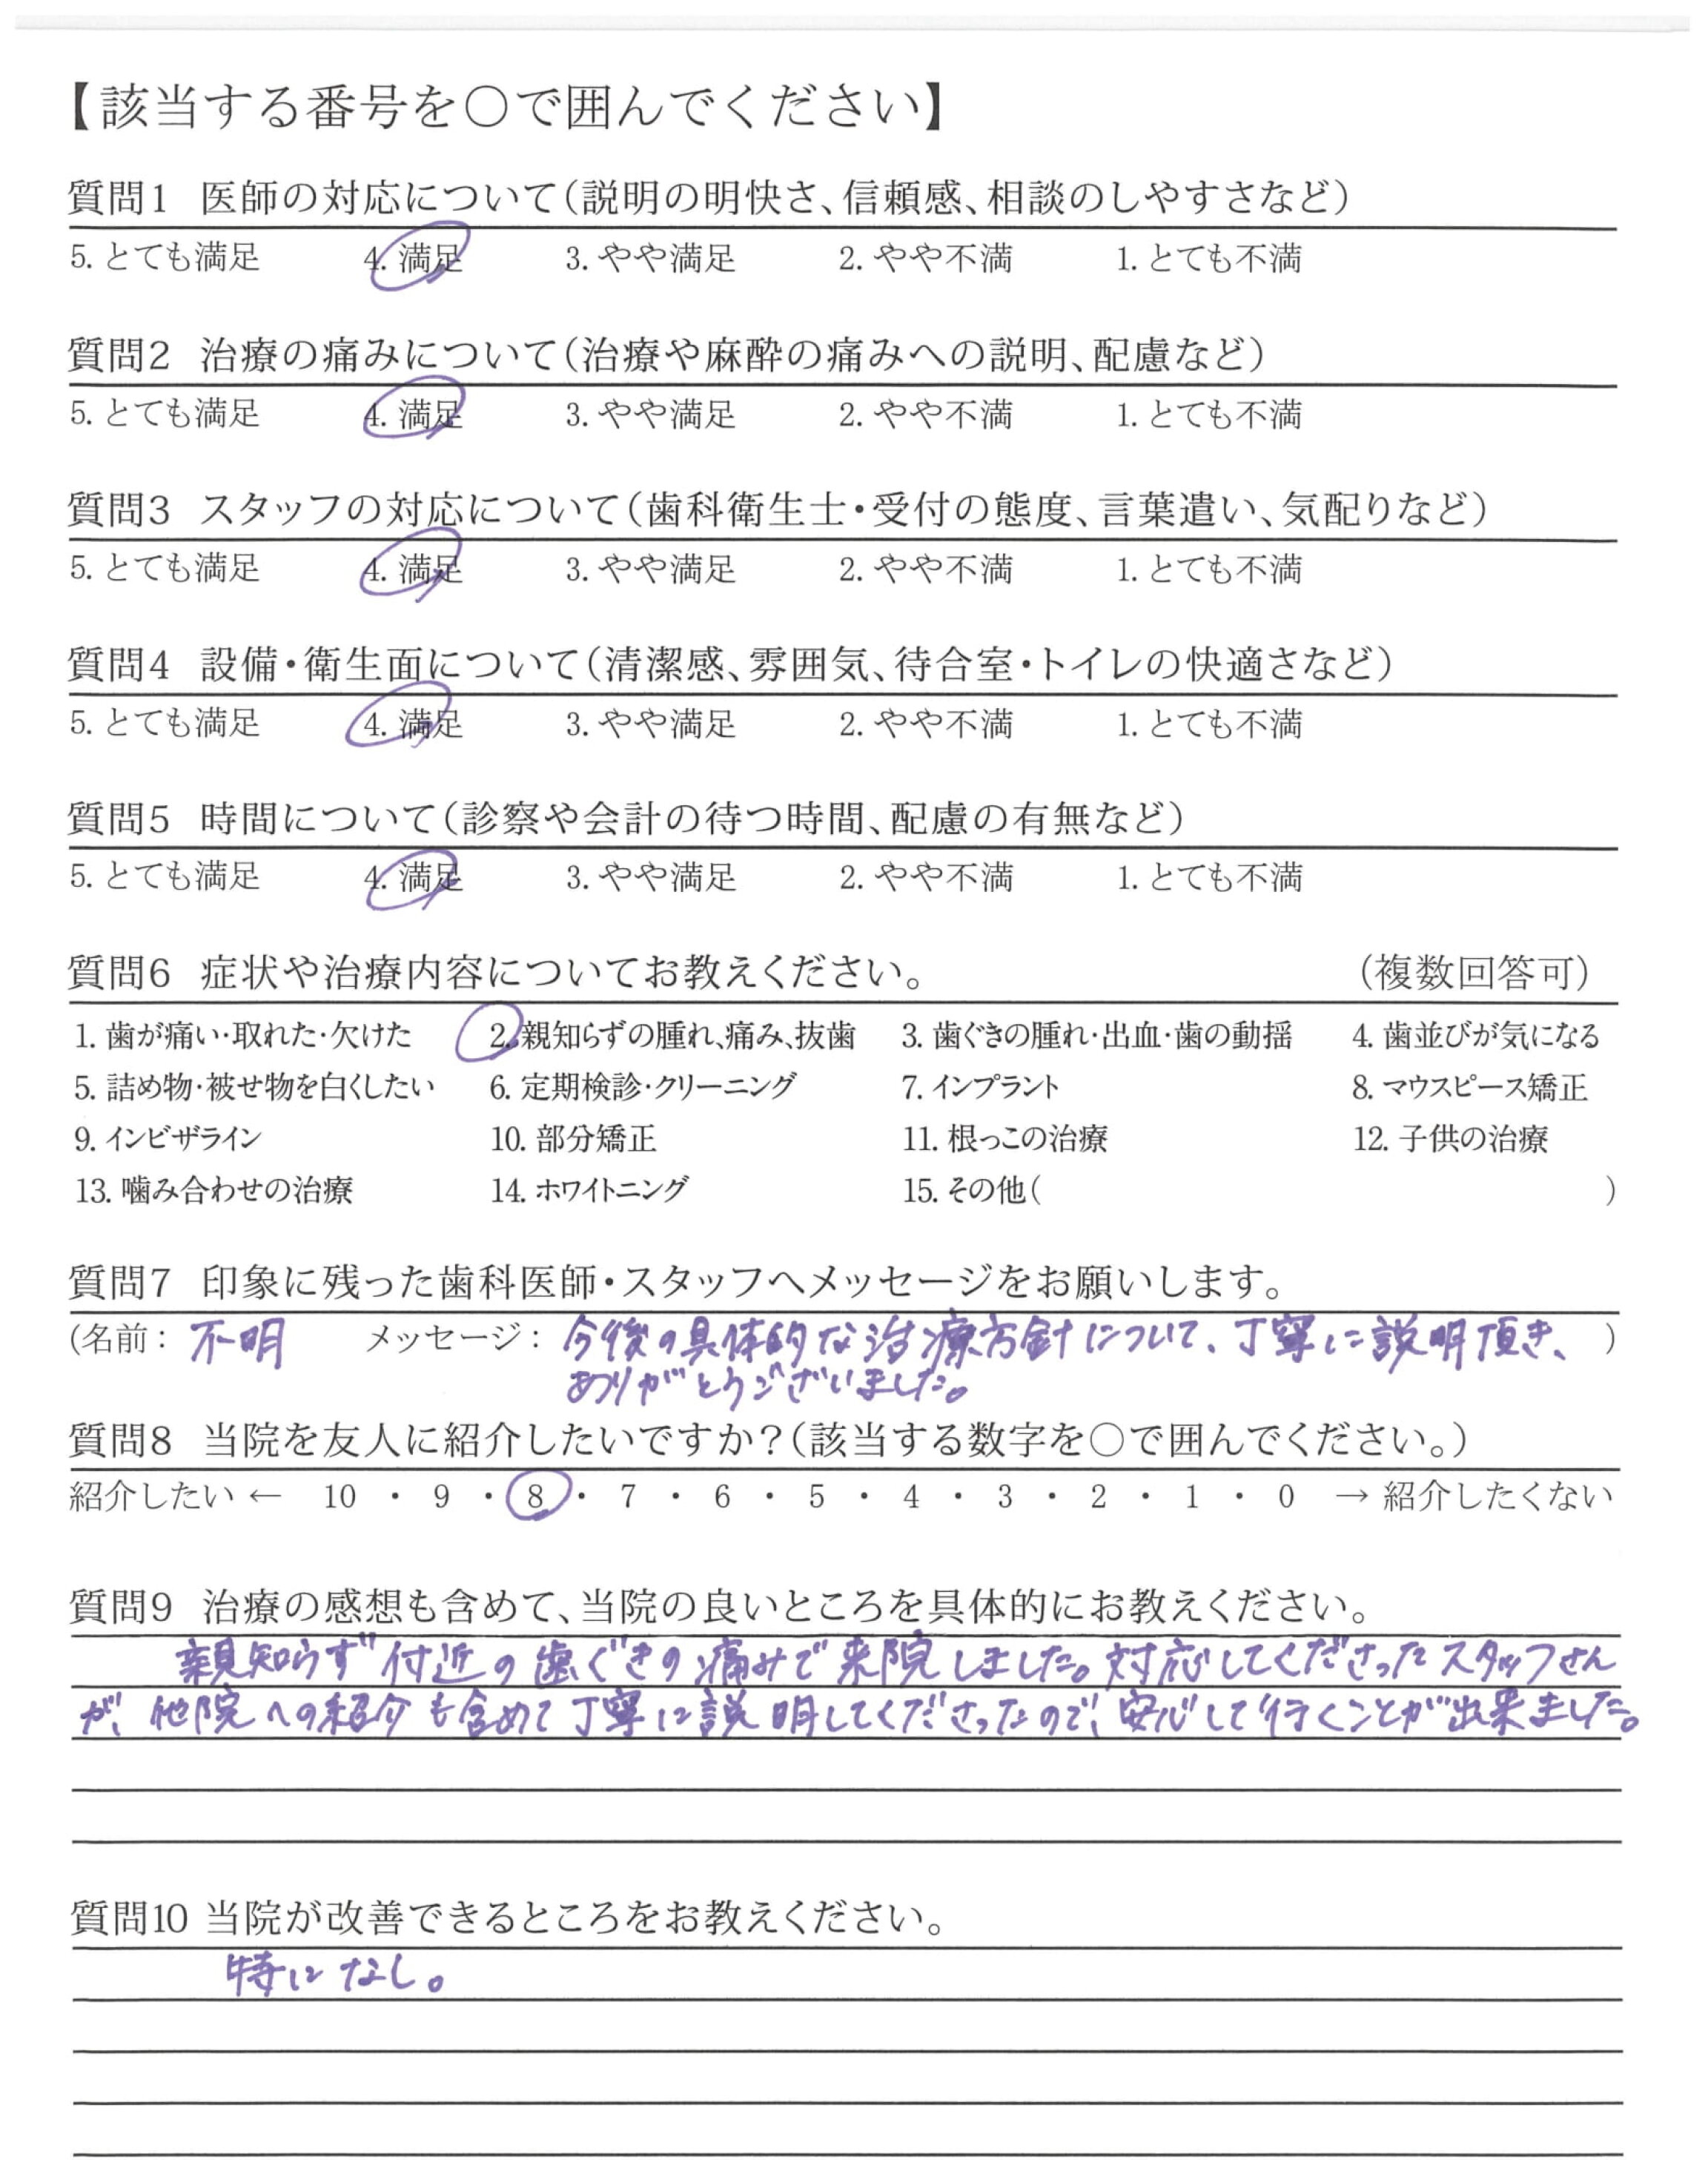 【該当する番号を○で囲んでください】
質問1 医師の対応について(説明の明快さ、信頼感、相談のしやすさなど)
5. とても満足 4. 満足 3. やや満足 2. やや不満 1. とても不満
質問2 治療の痛みについて(治療や麻酔の痛みへの説明、配慮など)
5. とても満足 4. 満足 3. やや満足 2. やや不満 1. とても不満
質問3 スタッフの対応について(歯科衛生士・受付の態度、言葉遣い、気配りなど)
5. とても満足 4. 満足 3. やや満足 2. やや不満 1. とても不満
質問4 設備・衛生面について(清潔感、雰囲気、待合室・トイレの快適さなど)
5. とても満足 4. 満足 3. やや満足 2. やや不満 1. とても不満
質問5 時間について(診察や会計の待つ時間、配慮の有無など)
5. とても満足 4. 満足 3. やや満足 2. やや不満 1. とても不満
質問6 症状や治療内容についてお教えください。 (複数回答可)
1. 歯が痛い・取れた・欠けた 2. 親知らずの腫れ、痛み、抜歯 3. 歯ぐきの腫れ・出血・歯の動揺 4. 歯並びが気になる
5. 詰め物・被せ物を白くしたい 6. 定期検診・クリーニング 7. インプラント 8. マウスピース矯正
9. インビザライン 10. 部分矯正 11. 根っこの治療 12. 子供の治療
13. 噛み合わせの治療 14. ホワイトニング 15. その他( )
質問7 印象に残った歯科医師・スタッフへメッセージをお願いします。
(名前: 不明 メッセージ: 今後の具体的な治療方針について、丁寧に説明頂き、 )
ありがとうございました。
質問8 当院を友人に紹介したいですか?(該当する数字を○で囲んでください。)
紹介したい ← 10 ・ 9 ・ 8 ・ 7 ・ 6 ・ 5 ・ 4 ・ 3 ・ 2 ・ 1 ・ 0 → 紹介したくない
質問9 治療の感想も含めて、当院の良いところを具体的にお教えください。
親知らず付近の歯ぐきの痛みで来院しました。対応してくださったスタッフさん
が、他院への紹介も含めて丁寧に説明してくださったので、安心して行くことが出来ました。
質問10 当院が改善できるところをお教えください。
特になし。